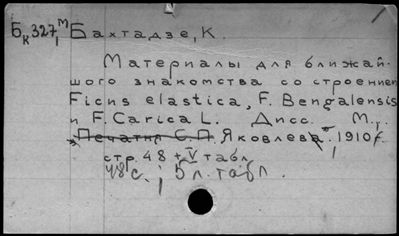 Бк 327/1 М Бахтадзе, К.
Материалы для ближай-
шого знакомства со строением
Ficus elastica, F. Bengalensis
и F. Carica L. Дисс. М.,
Печатня С.П. Яковлева. 1910г.
стр. 48 + V табл.
48 с. ; 5 л. табл.